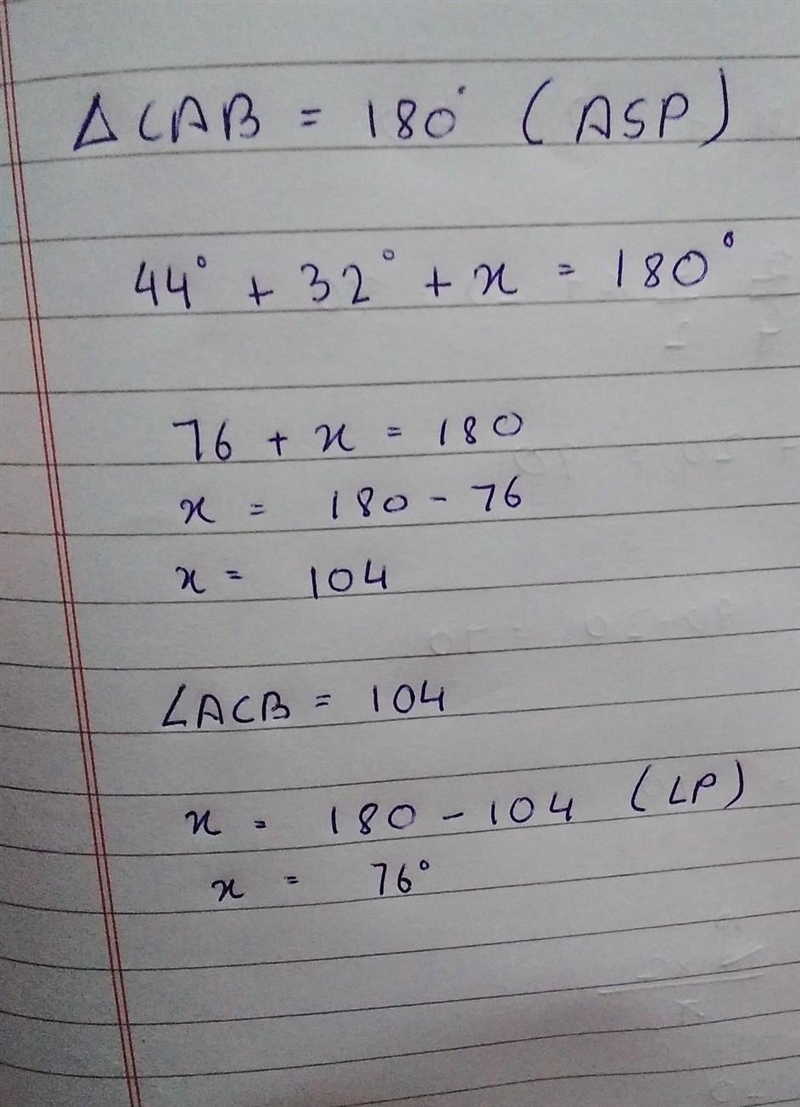 △CAB = 180° (ASP)
44° + 32° + x = 180°
76 + x = 180
x = 180 - 76
x = 104
∠ACB = 104
x = 180 - 104 (LP)
x = 76°